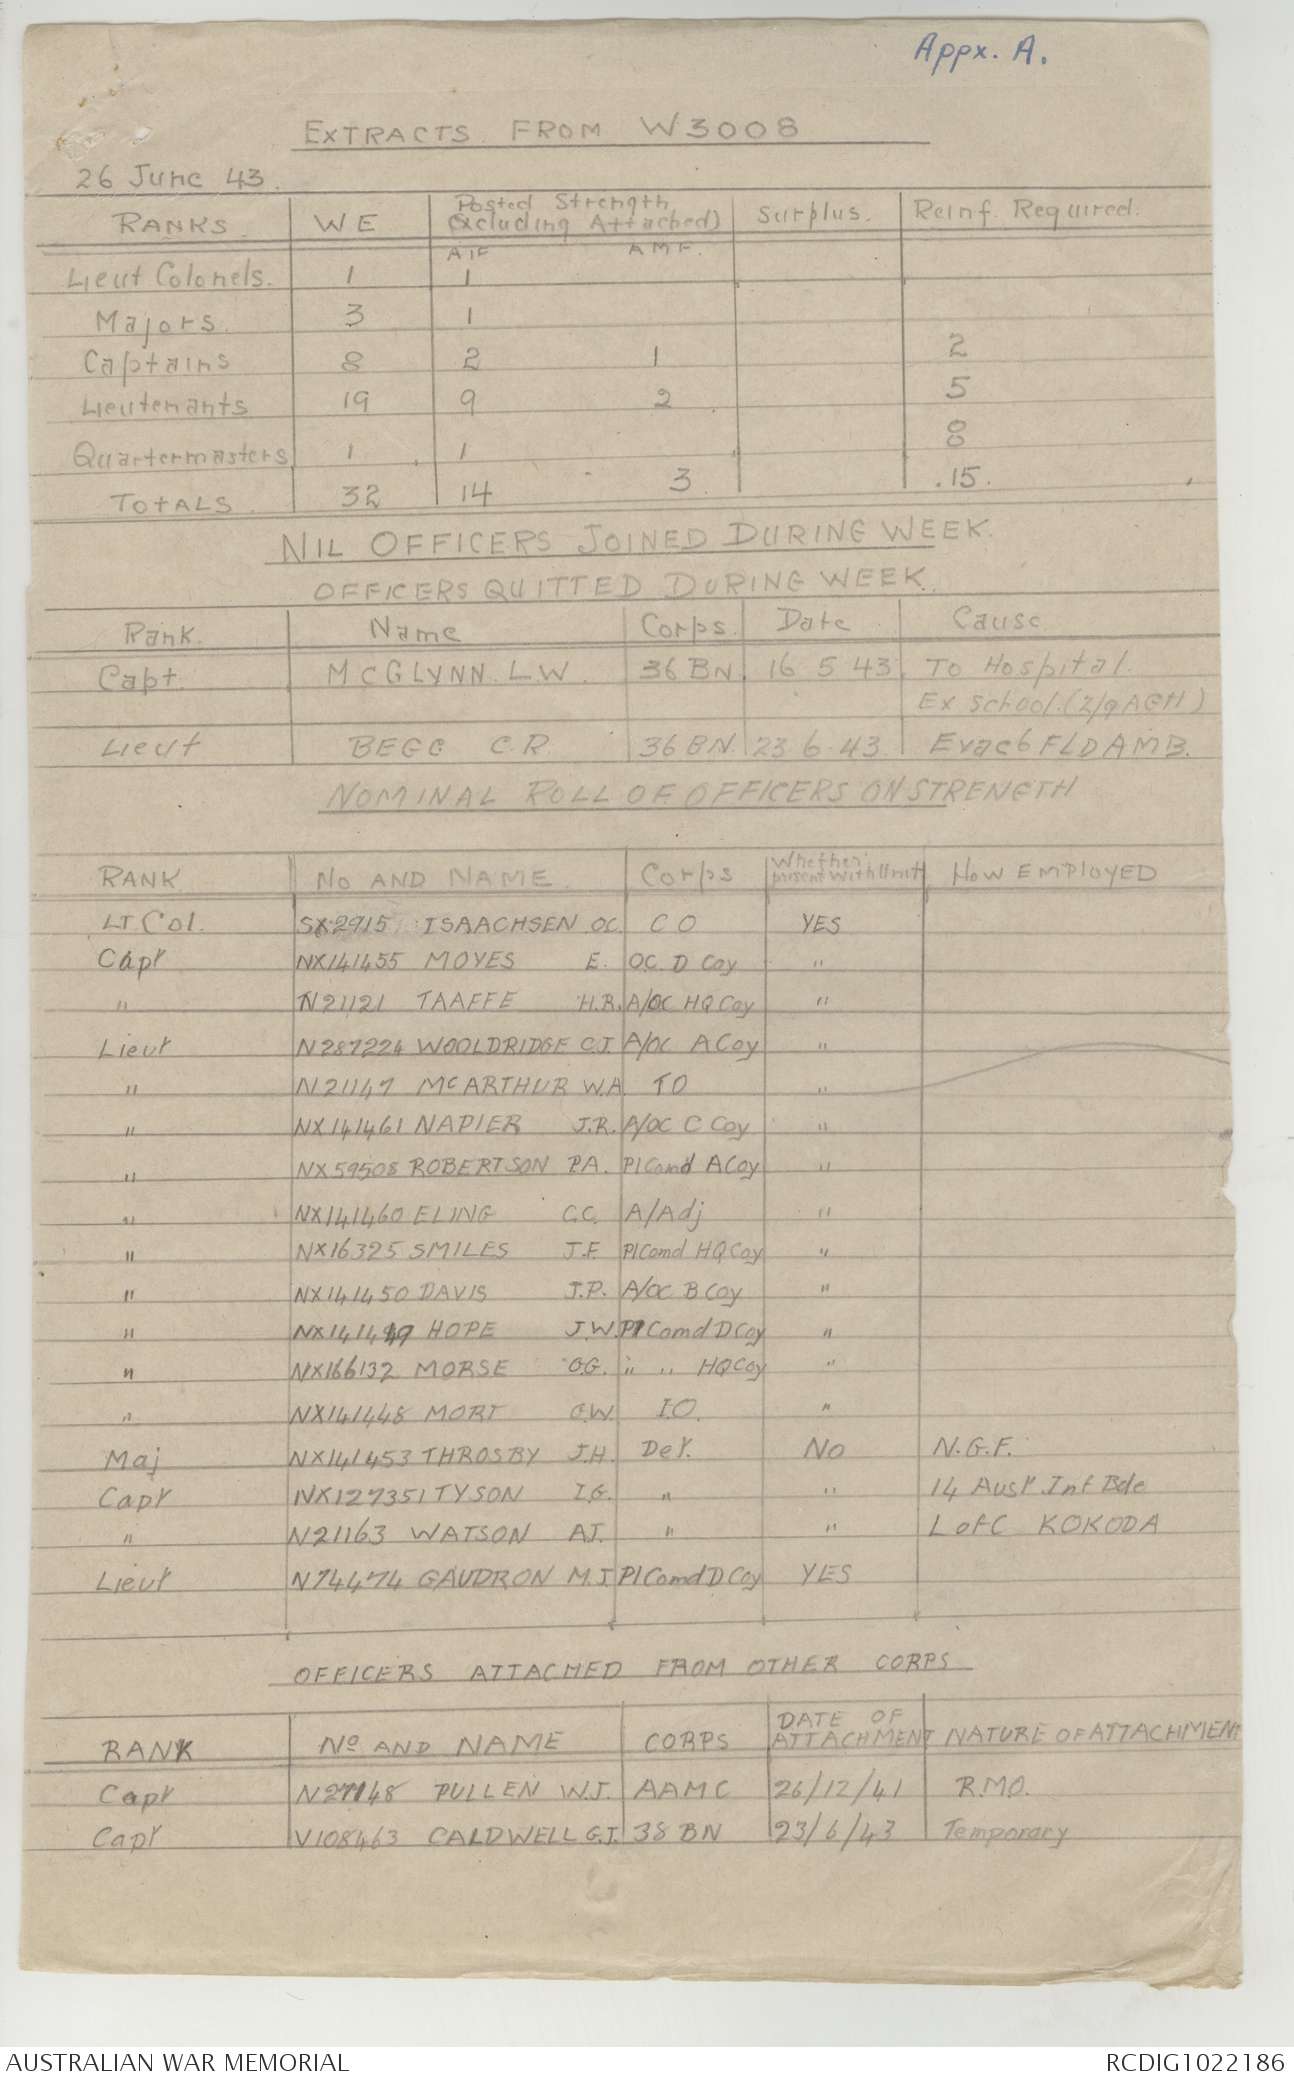 Appx. A.
EXTRACTS FROM W3008
26 June 43.
RANKS. WE Posted Strength (Excluding Attached) Surplus. Reinf. Required.
AIF AMF.
Lieut Colonels. 1 1
Majors. 3 1
Captains 8 2 1 2
Lieutenants 19 9 2 5
Quartermasters 1 1 8
TOTALS 32 14 3. .15.
NIL OFFICERS JOINED DURING WEEK.
OFFICERS QUITTED DURING WEEK.
Rank. Name Corps. Date Cause
Capt. McGLYNN. L.W. 36 BN 16 5 43 To Hospital.
Ex School. (2/9 AGH)
Lieut BEGG C.R. 36 BN. 23 6 43 Evac 6 FLD AMB.
NOMINAL ROLL OF OFFICERS ON STRENGTH
RANK No AND NAME Corps Whether present with Unit HOW EMPLOYED
LT Col. SX2915 ISAACHSEN OC. C O YES
Capt NX141455 MOYES E. OC D Coy "
" N21121 TAAFFE H.R. A/OC HQ Coy "
Lieut N287224 WOOLDRIDGE C.J. A/OC A Coy "
" N21147 McARTHUR W.A. TO "
" NX141461 NAPIER J.R. A/OC C Coy "
" NX59508 ROBERTSON P.A. Pl Comd A Coy "
" NX141460 ELING C.C. A/Adj "
" NX16325 SMILES J.F. Pl Comd HQ Coy "
" NX141450 DAVIS J.P. A/OC B Coy "
" NX141449 HOPE J.W. Pl Comd D Coy "
" NX166132 MORSE G.G. " " HQ Coy "
" NX141448 MORT G.W. I.O. "
Maj NX141453 THROSBY J.H. Det. NO N.G.F.
Capt NX127351 TYSON I.G. " " 14 Aust Inf Bde
" N21163 WATSON A.J. " " L of C KOKODA
Lieut N74474 GAUDRON M.J. Pl Comd D Coy YES
OFFICERS ATTACHED FROM OTHER CORPS
RANK No AND NAME CORPS DATE OF ATTACHMENT NATURE OF ATTACHMENT
Capt N27148 PULLEN W.J. AAMC 26/12/41 R.M.O.
Capt V108463 CALDWELL G.J. 38 BN 23/6/43 Temporary
AUSTRALIAN WAR MEMORIAL RCDIG1022186